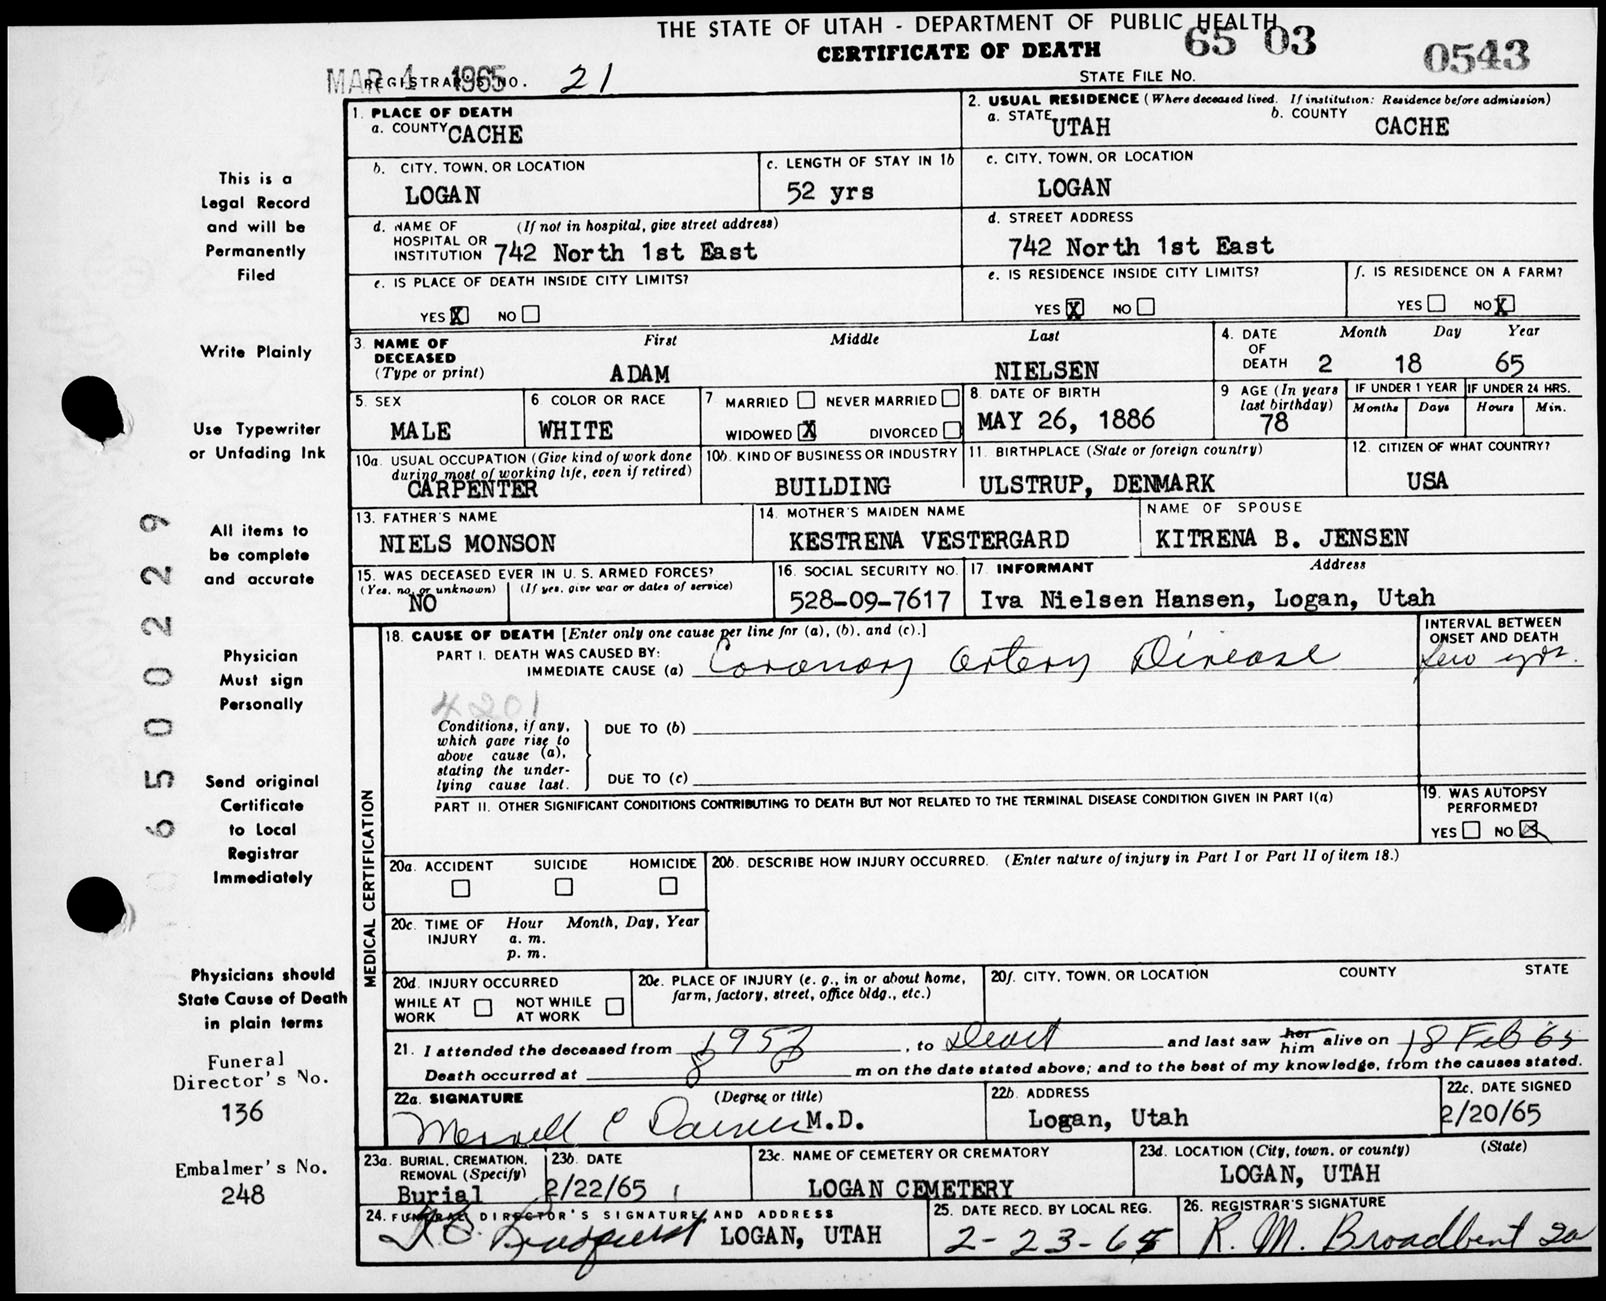 THE STATE OF UTAH - DEPARTMENT OF PUBLIC HEALTH
CERTIFICATE OF DEATH
65 03
0543
MAR 4 1965
REGISTRAR'S NO. 21
STATE FILE NO.
1. PLACE OF DEATH
a. COUNTY CACHE
2. USUAL RESIDENCE (Where deceased lived. If institution: Residence before admission)
a. STATE UTAH b. COUNTY CACHE
b. CITY, TOWN, OR LOCATION
LOGAN
c. LENGTH OF STAY IN 1b
52 yrs
c. CITY, TOWN, OR LOCATION
LOGAN
d. NAME OF HOSPITAL OR INSTITUTION (If not in hospital, give street address)
742 North 1st East
d. STREET ADDRESS
742 North 1st East
e. IS PLACE OF DEATH INSIDE CITY LIMITS?
YES X NO
e. IS RESIDENCE INSIDE CITY LIMITS?
YES X NO
f. IS RESIDENCE ON A FARM?
YES NO X
3. NAME OF DECEASED (Type or print)
First Middle Last
ADAM NIELSEN
4. DATE OF DEATH Month Day Year
2 18 65
5. SEX
MALE
6. COLOR OR RACE
WHITE
7. MARRIED NEVER MARRIED
WIDOWED X DIVORCED
8. DATE OF BIRTH
MAY 26, 1886
9 AGE (In years last birthday)
78
IF UNDER 1 YEAR
Months Days
IF UNDER 24 HRS.
Hours Min.
10a. USUAL OCCUPATION (Give kind of work done during most of working life, even if retired)
CARPENTER
10b. KIND OF BUSINESS OR INDUSTRY
BUILDING
11. BIRTHPLACE (State or foreign country)
ULSTRUP, DENMARK
12. CITIZEN OF WHAT COUNTRY?
USA
13. FATHER'S NAME
NIELS MONSON
14. MOTHER'S MAIDEN NAME
KESTRENA VESTERGARD
NAME OF SPOUSE
KITRENA B. JENSEN
15. WAS DECEASED EVER IN U. S. ARMED FORCES?
(Yes, no, or unknown) (If yes, give war or dates of service)
NO
16. SOCIAL SECURITY NO.
528-09-7617
17. INFORMANT Address
Iva Nielsen Hansen, Logan, Utah
MEDICAL CERTIFICATION
18. CAUSE OF DEATH [Enter only one cause per line for (a), (b), and (c).]
PART I. DEATH WAS CAUSED BY:
IMMEDIATE CAUSE (a) Coronary Artery Disease
INTERVAL BETWEEN ONSET AND DEATH
few yrs.
4201
Conditions, if any, which gave rise to above cause (a), stating the underlying cause last.
DUE TO (b)
DUE TO (c)
PART II. OTHER SIGNIFICANT CONDITIONS CONTRIBUTING TO DEATH BUT NOT RELATED TO THE TERMINAL DISEASE CONDITION GIVEN IN PART I(a)
19. WAS AUTOPSY PERFORMED?
YES NO X
20a. ACCIDENT SUICIDE HOMICIDE
20b. DESCRIBE HOW INJURY OCCURRED. (Enter nature of injury in Part I or Part II of item 18.)
20c. TIME OF INJURY Hour Month, Day, Year
a. m.
p. m.
20d. INJURY OCCURRED
WHILE AT WORK NOT WHILE AT WORK
20e. PLACE OF INJURY (e. g., in or about home, farm, factory, street, office bldg., etc.)
20f. CITY, TOWN, OR LOCATION COUNTY STATE
21. I attended the deceased from , to and last saw her him alive on 18 Feb 65
Death occurred at m on the date stated above; and to the best of my knowledge, from the causes stated.
22a. SIGNATURE (Degree or title)
Merrell C M.D.
22b. ADDRESS
Logan, Utah
22c. DATE SIGNED
2/20/65
23a. BURIAL, CREMATION, REMOVAL (Specify)
Burial
23b. DATE
2/22/65
23c. NAME OF CEMETERY OR CREMATORY
LOGAN CEMETERY
23d. LOCATION (City, town, or county) (State)
LOGAN, UTAH
24. FUNERAL DIRECTOR'S SIGNATURE AND ADDRESS
LOGAN, UTAH
25. DATE RECD. BY LOCAL REG.
2-23-65
26. REGISTRAR'S SIGNATURE
R. M. Broadbent
This is a
Legal Record
and will be
Permanently
Filed
Write Plainly
Use Typewriter
or Unfading Ink
All items to
be complete
and accurate
Physician
Must sign
Personally
Send original
Certificate
to Local
Registrar
Immediately
Physicians should
State Cause of Death
in plain terms
Funeral
Director's No.
136
Embalmer's No.
248
6500229